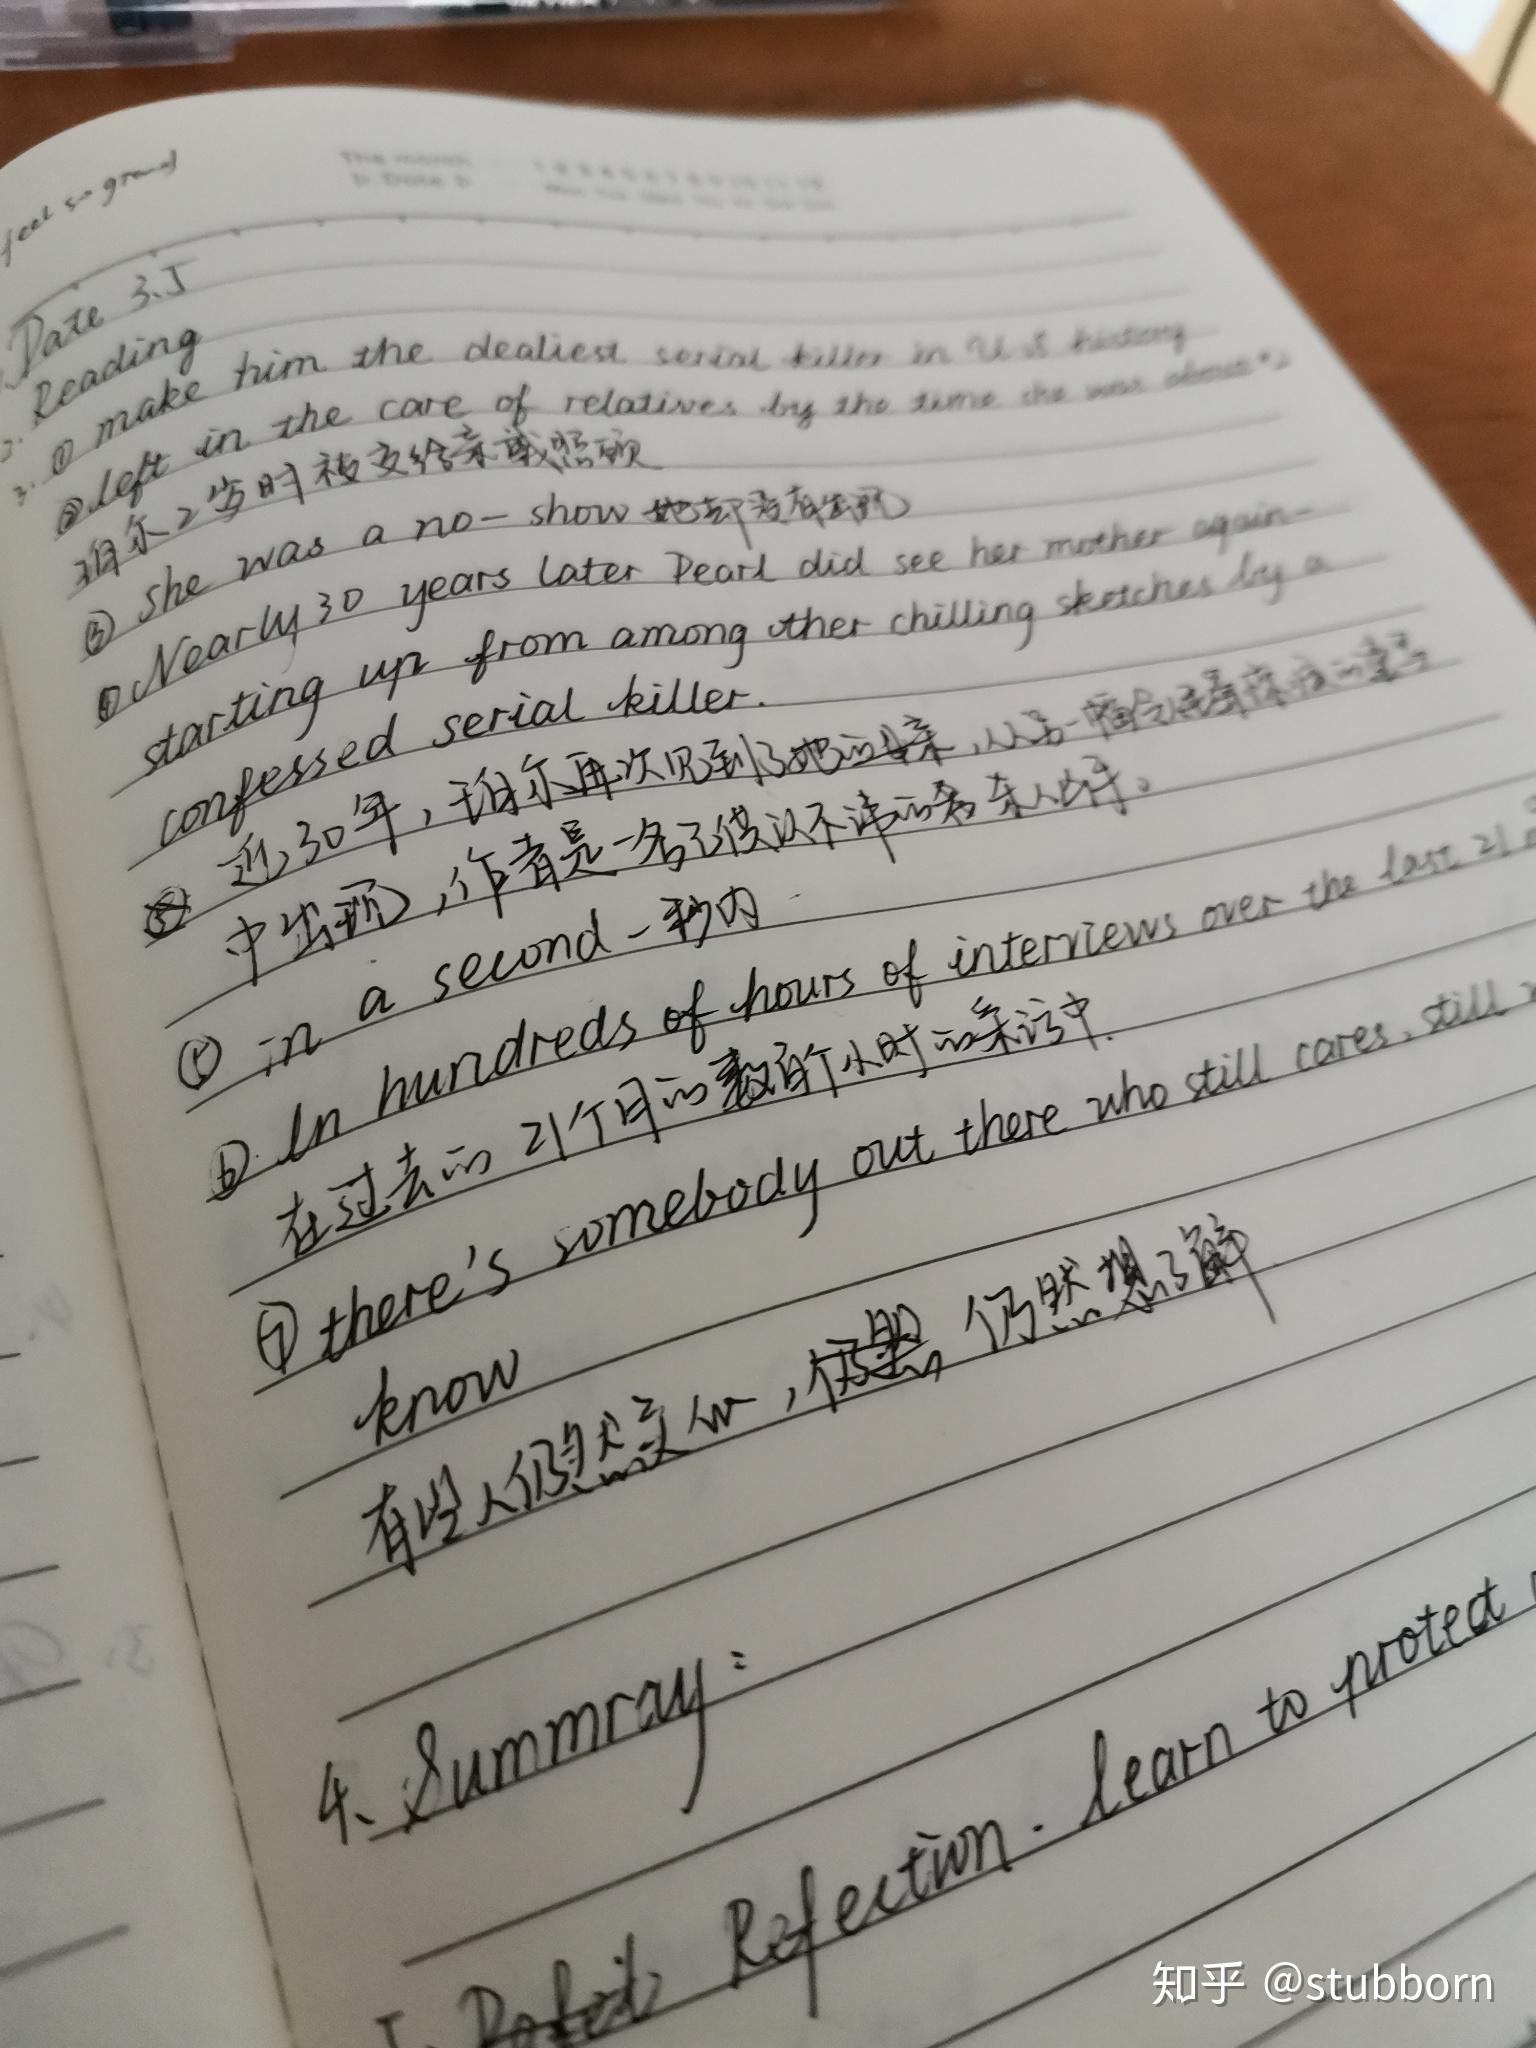 feel so
The month
Date
1. Date 3.5
2. Reading
3. ① make him the dealiest serial killer in U.S history
② left in the care of relatives by the time she was about 2
珀尔2岁时被交给亲戚照顾
③ she was a no-show 她却没有出现
④ Nearly 30 years later Pearl did see her mother again-
starting up from among other chilling sketches by a
confessed serial killer.
近30年,珀尔再次见到了她的母亲,从另一幅令人毛骨悚然的
中出现,作者是一名已供认不讳的杀人
⑤ in a second 一秒内
⑥ In hundreds of hours of interviews over the last 21
在过去的21个月的数百个小时的采访中.
⑦ there's somebody out there who still cares, still
know
有些人仍然关心, 仍然想了解
4. Summray:
5. Refection. learn to protect
知乎 @stubborn